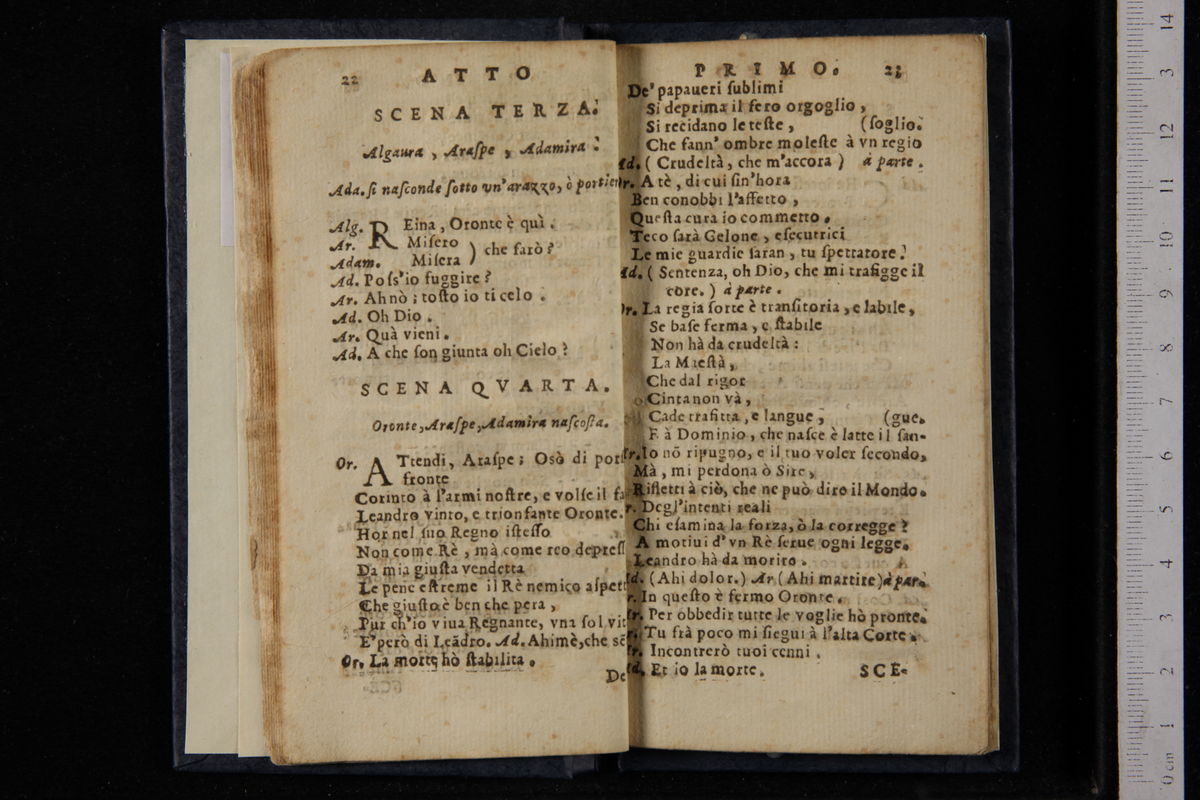 22 ATTO
SCENA TERZA.
Algaura, Araſpe, Adamira.
Ada. ſi naſconde ſotto vn'arazzo, ò portier
Alg. REina, Oronte è quì.
Ar. Miſero
Adam. Miſera ) che farò?
Ad. Poſs'io fuggire?
Ar. Ah nò; toſto io ti celo.
Ad. Oh Dio.
Ar. Quà vieni.
Ad. A che ſon giunta oh Cielo?
SCENA QVARTA.
Oronte, Araſpe, Adamira naſcoſta.
Or. ATtendi, Araſpe; Osò di
fronte
Corinto à l'armi noſtre, e volſe il
Leandro vinto, e trionfante Oronte.
Hor nel ſuo Regno iſteſſo
Non come Rè, mà come reo
Da mia giuſta vendetta
Le pene eſtreme il Rè nemico
Che giuſto è ben che pera,
Pur ch'io viua Regnante, vna ſol
E' però di Leãdro. Ad. Ahimè, che
Or. La morte hò ſtabilita.
De'
PRIMO. 23
De' papaueri ſublimi
Si deprima il fero orgoglio,
Si recidano le teſte, (ſoglio.
Che fann' ombre moleſte à vn regio
Ad. ( Crudeltà, che m'accora ) à parte.
Or. A tè, di cui ſin'hora
Ben conobbi l'affetto,
Queſta cura io commetto.
Teco ſarà Gelone, eſecutrici
Le mie guardie ſaran, tu ſpettatore.
Ad. ( Sentenza, oh Dio, che mi trafigge il
core. ) à parte.
Or. La regia ſorte è tranſitoria, e labile,
Se baſe ferma, e ſtabile
Non hà da crudeltà:
La Maeſtà,
Che dal rigor
Cinta non và,
Cade trafitta, e langue, (gue.
E à Dominio, che naſce è latte il ſan-
Ar. Io nõ ripugno, e il tuo voler ſecondo,
Mà, mi perdona ò Sire,
Rifletti à ciò, che ne può dire il Mondo.
Or. Degl'intenti reali
Chi eſamina la forza, ò la corregge?
A motiui d'vn Rè ſerue ogni legge.
Leandro hà da morire.
Ad. (Ahi dolor.) Ar (Ahi martire) à par.
Or. In queſto è fermo Oronte.
Ar. Per obbedir tutte le voglie hò pronte.
Or. Tu frà poco mi ſiegui à l'alta Corte.
Ar. Incontrerò tuoi cenni.
Ad. Et io la morte. SCE-
14
13
12
11
10
9
8
7
6
5
4
3
2
1
0 cm